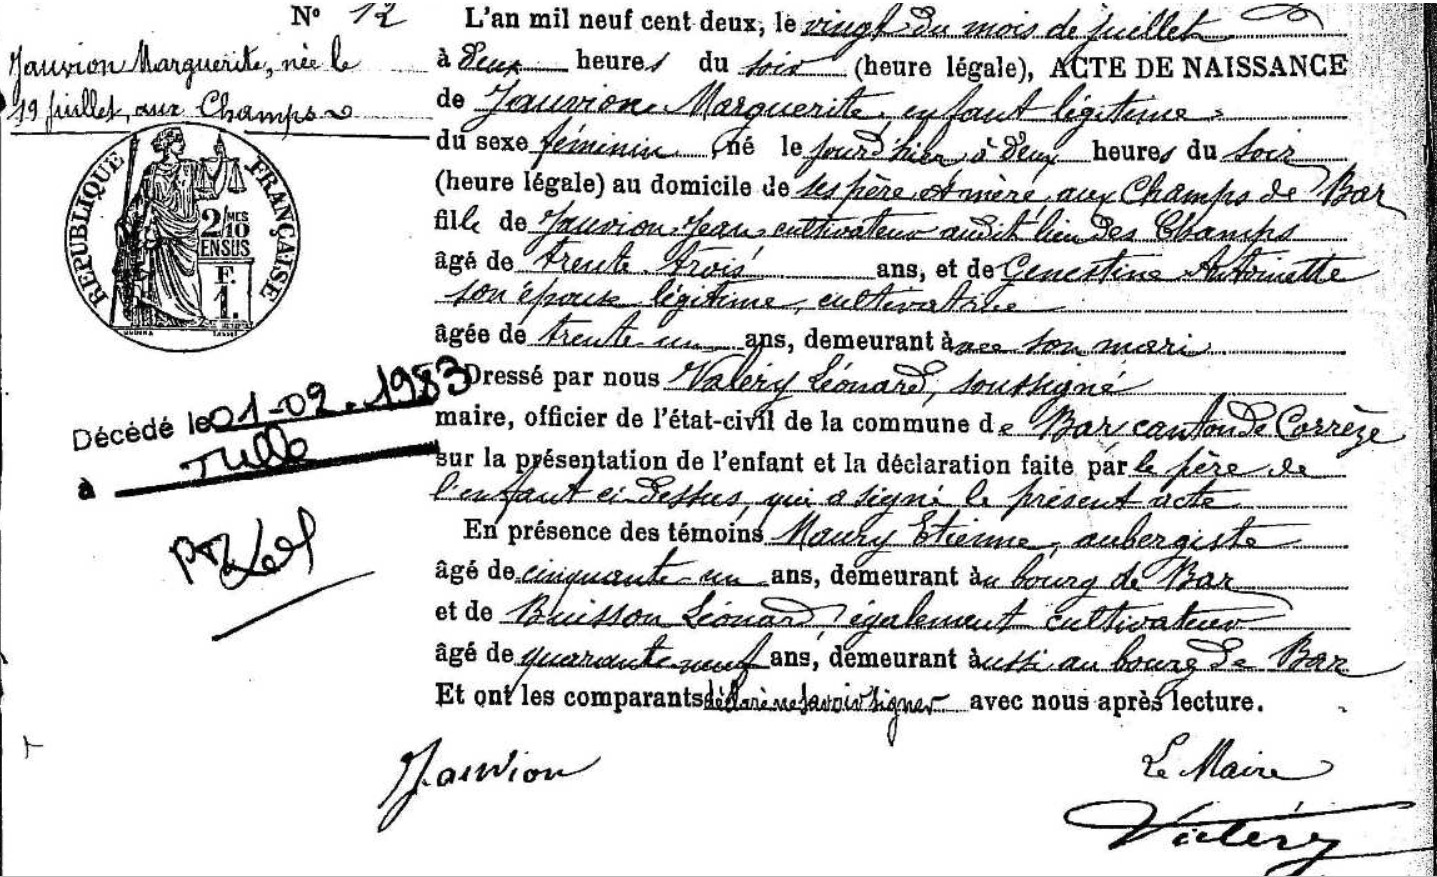 N° 12
Jauvion Marguerite, née le
19 juillet, aux Champs
RÉPUBLIQUE FRANÇAISE
2/MES
10
EN SUS
F.
1.
Décédé le 01-02-1983
à Tulle
L'an mil neuf cent deux, le vingt du mois de juillet
à deux heures du soir (heure légale), ACTE DE NAISSANCE
de Jauvion Marguerite, enfant légitime
du sexe féminin, né le jour d'hier à deux heures du soir
(heure légale) au domicile de ses père et mère aux Champs de Bar
fille de Jauvion Jean, cultivateur audit lieu des Champs
âgé de trente trois ans, et de Genestine Antoinette
son épouse légitime, cultivatrice
âgée de trente un ans, demeurant avec son mari
Dressé par nous Valéry Léonard, soussigné
maire, officier de l'état-civil de la commune de Bar canton de Corrèze
sur la présentation de l'enfant et la déclaration faite par le père de
l'enfant ci dessus, qui a signé le présent acte
En présence des témoins Maury Etienne, aubergiste
âgé de cinquante-un ans, demeurant au bourg de Bar
et de Buisson Léonard, également cultivateur
âgé de quarante neuf ans, demeurant aussi au bourg de Bar
Et ont les comparants déclaré ne savoir signer avec nous après lecture.
Jauvion
Le Maire
Valéry